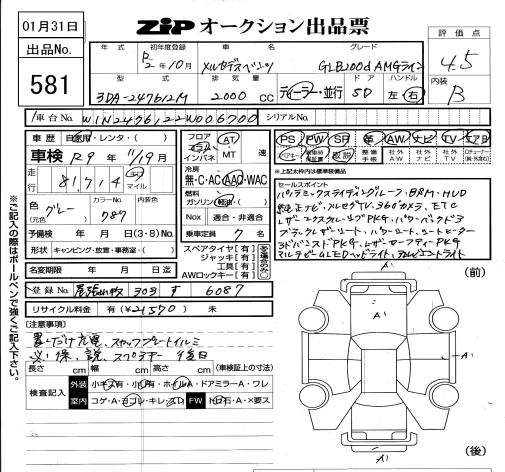 01月31日
ZIP オークション出品票
出品No.
581
評価点
4.5
内装
B
年式 初年度登録 車名 グレード
R2年10月 メルセデスベンツ GLB200d AMGライン
型式 排気量 ドア ハンドル
3DA-247612M 2000 cc ディーラー・並行 5D 左・右
車台No. W1N2476122W006700 シリアルNo.
車歴 自家用・レンタ・( )
車検 R9年 11/19月
走行 81,714 km マイル
色 グレー (元色) カラーNo. 787 内装色
予備検 年 月 日(3・8)No.
形状 キャンピング・放富・事務室・( )
名変期限 年 月 日迄
フロア コラム インパネ AT MT 速
冷房
無・C・AC・AAC・WAC
燃料
ガソリン・軽油・( )
Nox 適合・非適合
乗車定員 7 名
スペアタイヤ【有】
ジャッキ【有】
工具【有】
AWロックキー【有】
PS PW SR 革 AW ナビ TV エアB
取説 整備手帳 社外AW 社外ナビ 社外TV
▲上記太枠内は標準装備品
セールスポイント
パノラミックスライディングルーフ・BRM・HUD
純正ナビ・フルセグTV・360°カメラ、ETC
レザーエクスクルーシブPKG・パワーバックドア
ブラックレザーシート・パワーシート・シートヒーター
アドバンストPKG、レーダーセーフティーPKG
マルチビームLEDヘッドライト、アンビエントライト
登録No. 尾張小牧 303 す 6087
リサイクル料金 有(¥21570) 未
【注意事項】
置くだけ充電、スカッフプレートイルミ
長さ cm 幅 cm 高さ cm (車検証上の寸法)
検査記入 外装 小キズ有・小凹有・ホイルA・ドアミラーA・ワレ
室内 コゲ・A・ヨゴレ・キレ・スレ FW 飛石・A・X要ス
(前)
A1
A1
A1
(後)
ご記入の際はボールペンで強くご記入下さい。